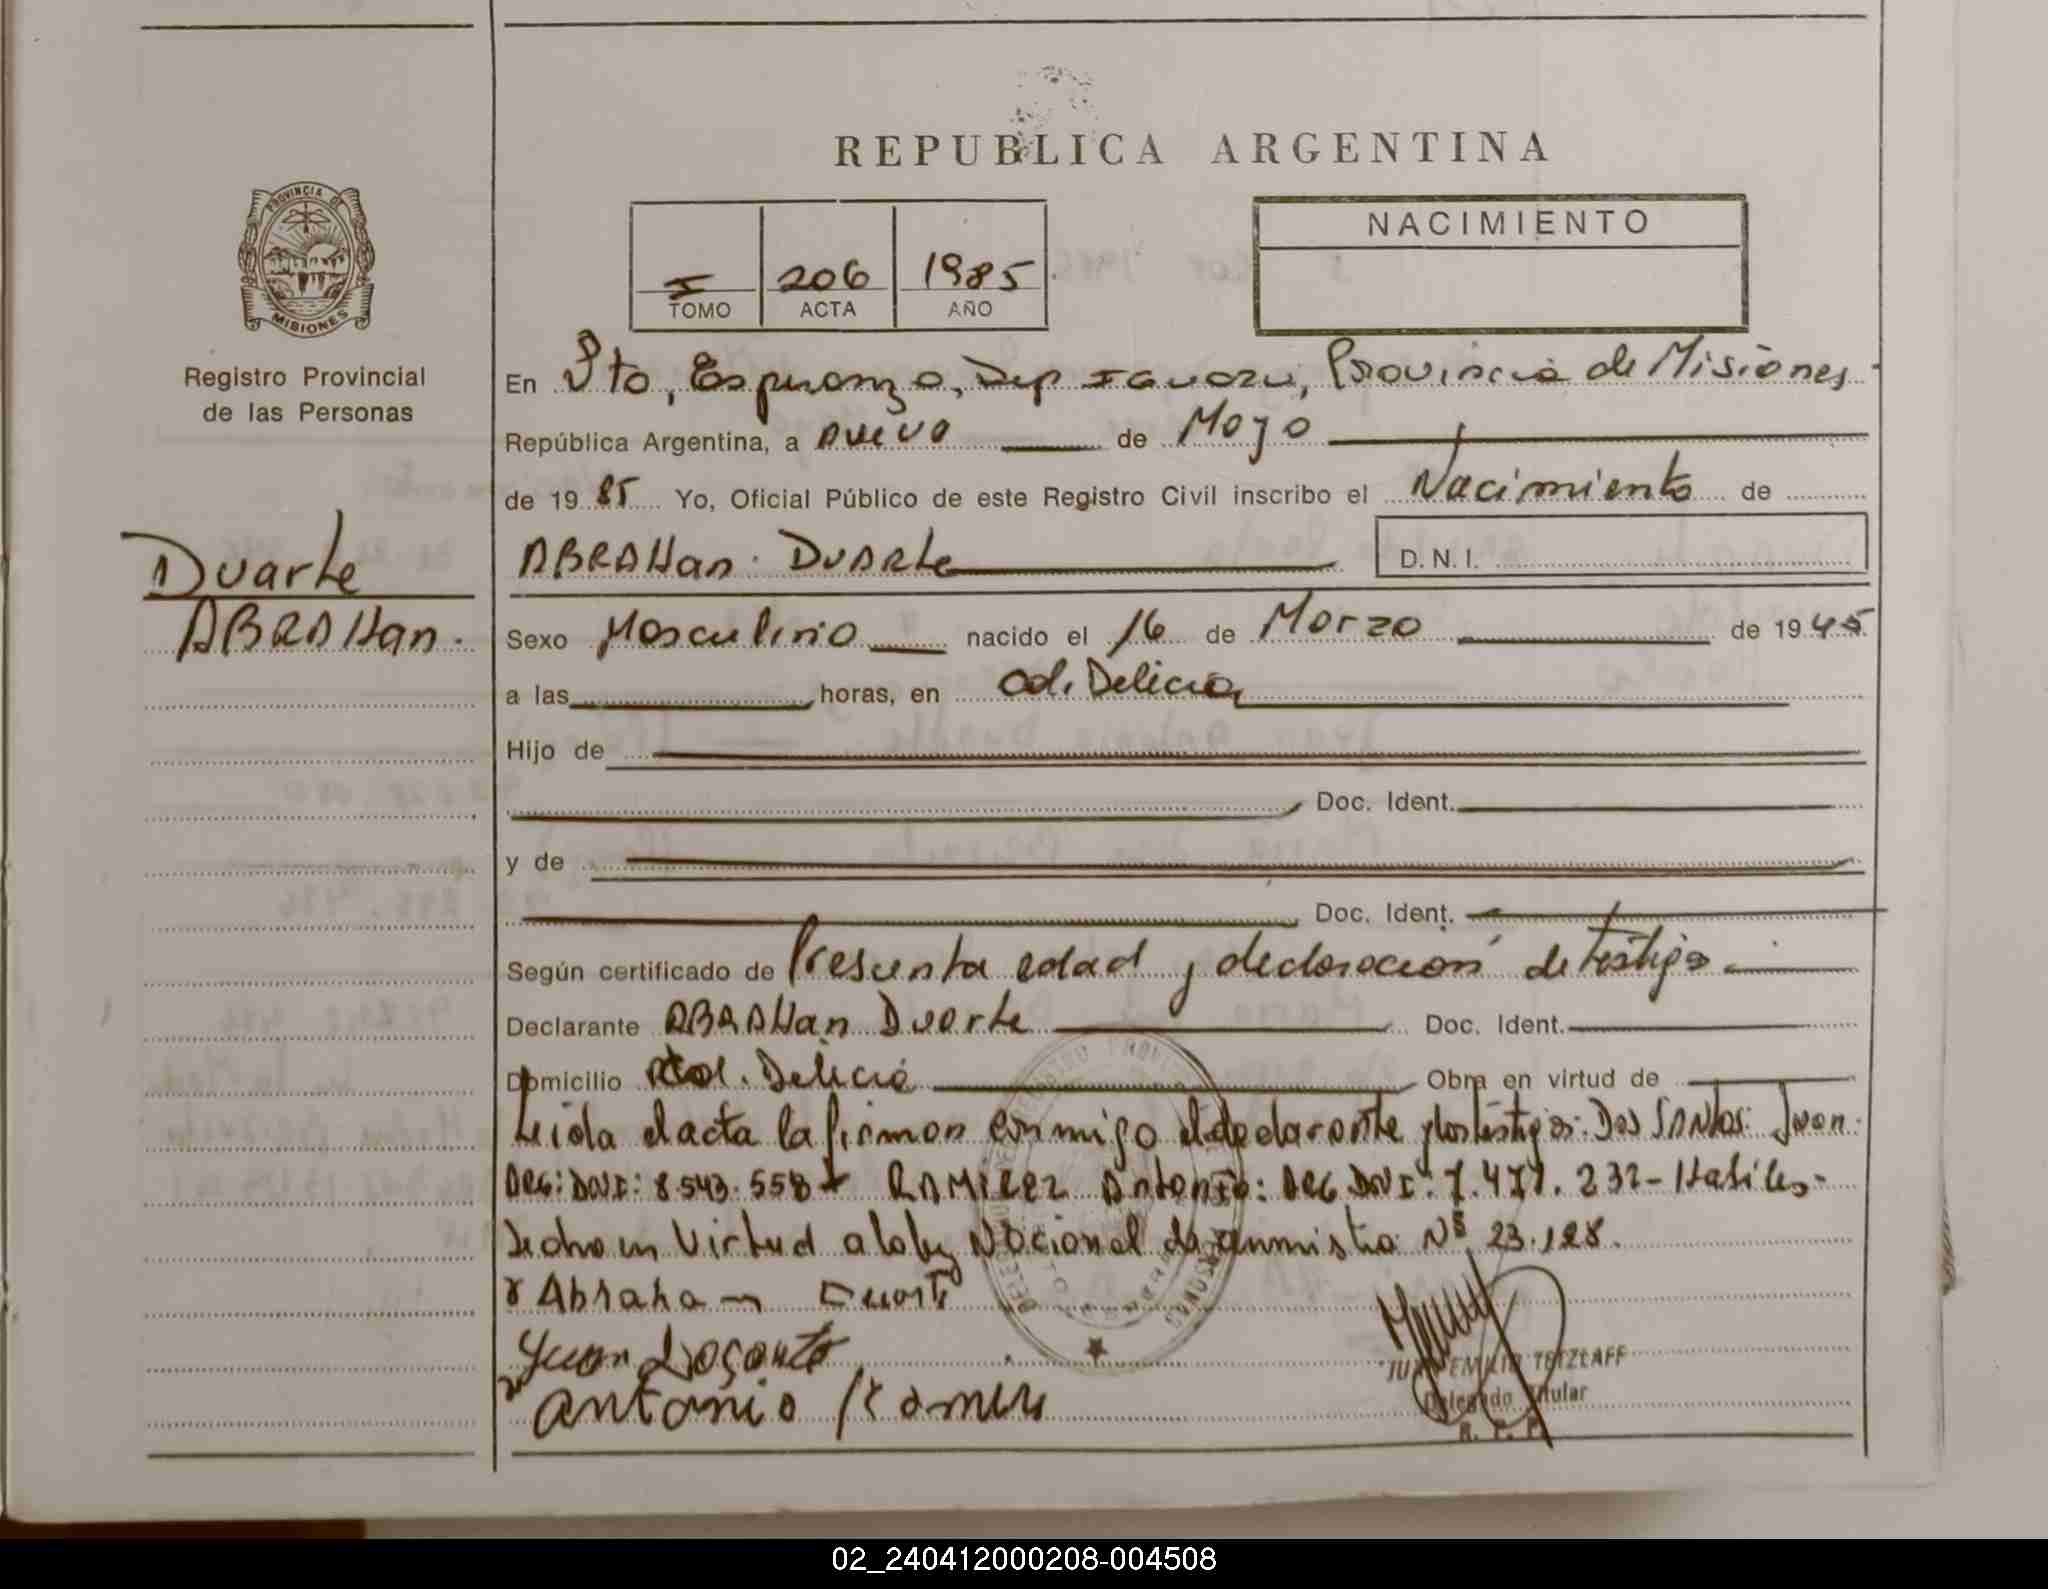 REPUBLICA ARGENTINA
PROVINCIA DE
MISIONES
Registro Provincial
de las Personas
I 206 1985
TOMO ACTA AÑO
NACIMIENTO
En Pto, Esperanza, Dep Iguazu, Provincia de Misiones
República Argentina, a nueve de Mayo
de 1985 Yo, Oficial Público de este Registro Civil inscribo el Nacimiento de
Duarte
ABRAHan.
ABRAHan. DUARte D.N.I.
Sexo Masculino nacido el 16 de Marzo de 1945
a las horas, en Col. Delicia
Hijo de
Doc. Ident.
y de
Doc. Ident.
Según certificado de Presunta edad y declaración de testigo.
Declarante ABRAHan Duarte Doc. Ident.
Domicilio Col. Delicia Obra en virtud de
Leida el acta la firman conmigo el declarante y los testigos: Dos SANtos: Juan.
ARG: DNI: 8.543.558 RAMIREZ Antonio: ARG DNI: 7.477.232- Habiles-
Nacional de anmistia Nº 23.128.
Abraham Duarte
Juan
Antonio Ramires
JUAN EMILIO TETZLAFF
Delegado Titular
R. P. P.
02_240412000208-004508